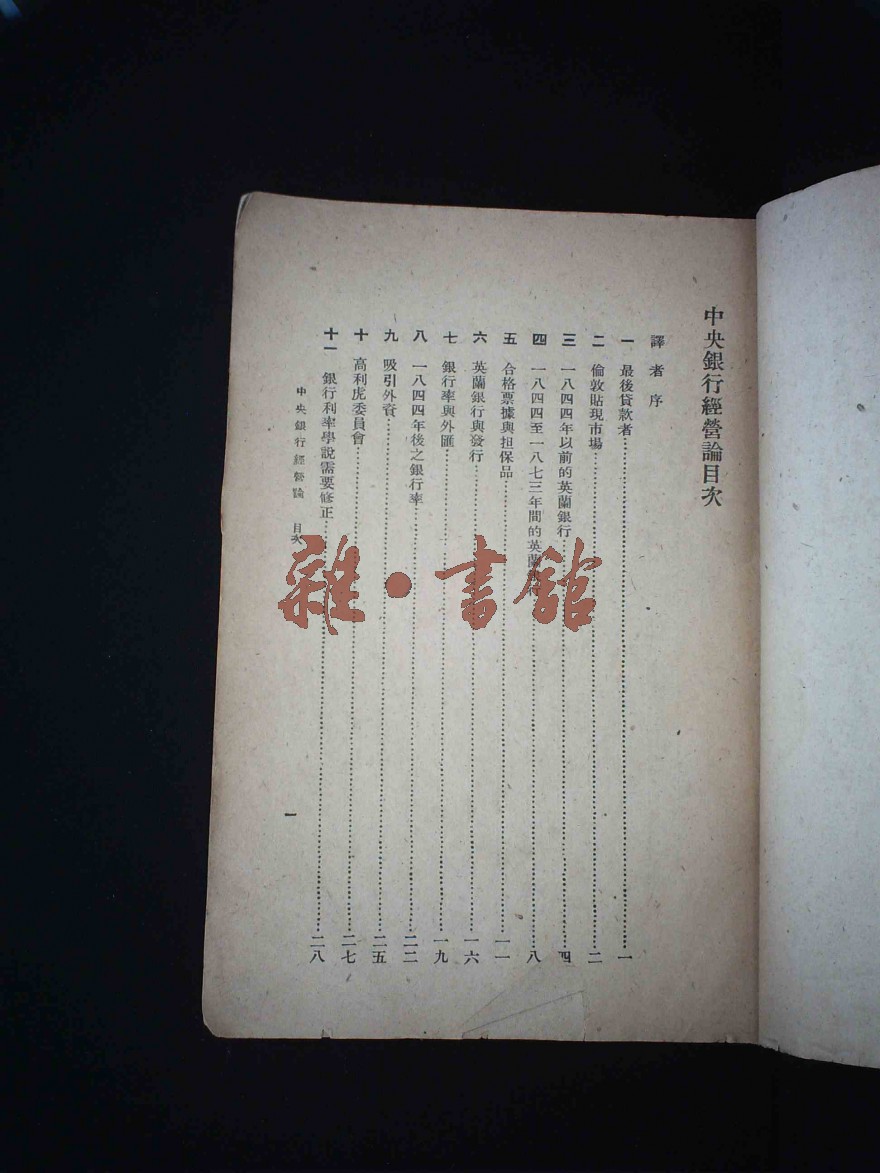 中央銀行經營論目次
譯者序
一 最後貸款者 一
二 倫敦貼現市場 二
三 一八四四年以前的英蘭銀行 四
四 一八四四至一八七三年間的英蘭銀行 八
五 合格票據與担保品 一一
六 英蘭銀行與發行 一六
七 銀行率與外匯 一九
八 一八四四年後之銀行率 二二
九 吸引外資 二五
十 高利虎委員會 二七
十一 銀行利率學說需要修正 二八
中央銀行經營論 目次
一
雜·書館